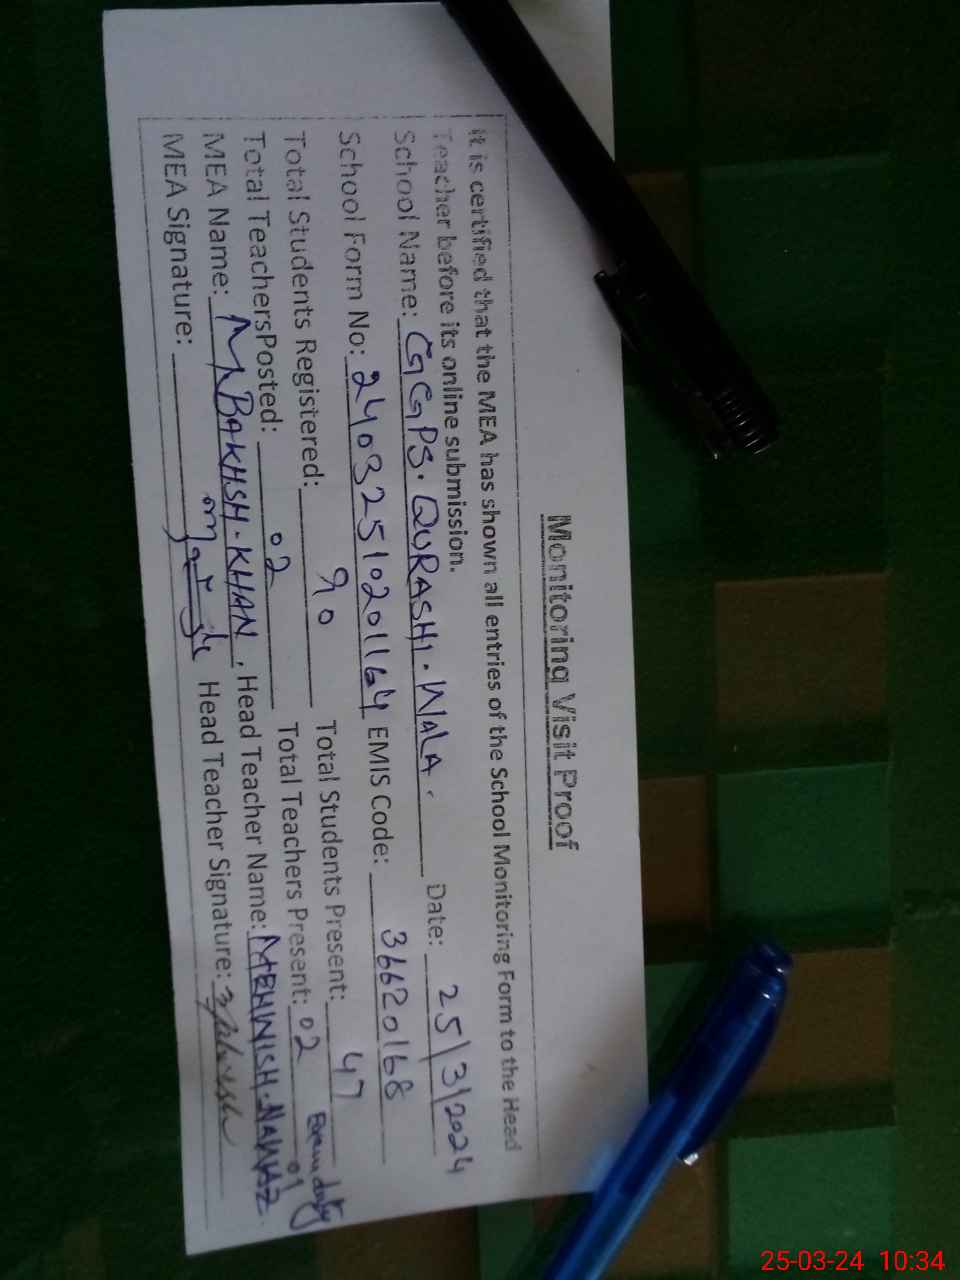 Monitoring Visit Proof
It is certified that the MEA has shown all entries of the School Monitoring Form to the Head
Teacher before its online submission.
School Name: GGPS. QURASHI. WALA. Date: 25/3/2024
School Form No: 24032510201164 EMIS Code: 36620168
Total Students Registered: 90 Total Students Present: 47
Total TeachersPosted: 02 Total Teachers Present: 02 Exam duty 01
MEA Name: M BAKHSH. KHAN. Head Teacher Name: MEHWISH. NAWAZ.
MEA Signature: Head Teacher Signature:
25-03-24 10:34